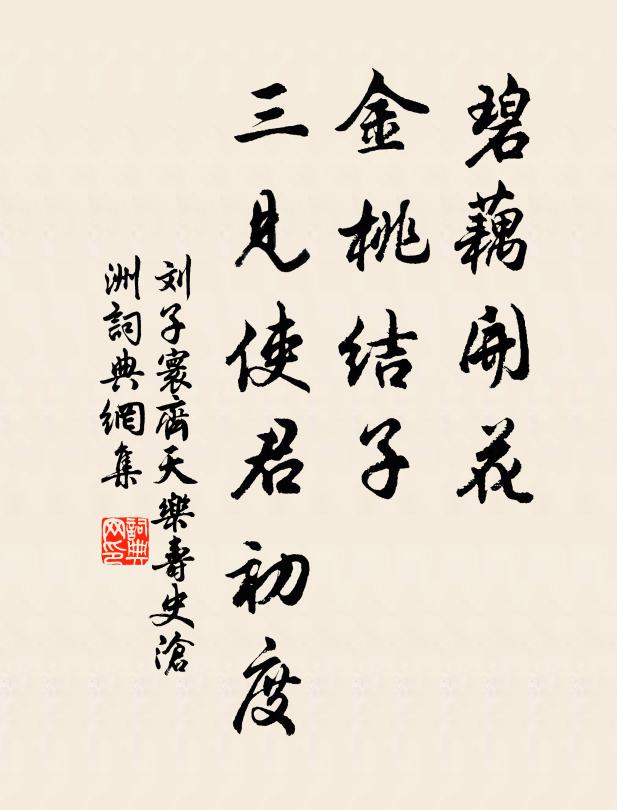 碧藕開花
金桃結子
三見使君初度
刘子寰齊天樂壽史滄
洲詞典網集
詞典
网印